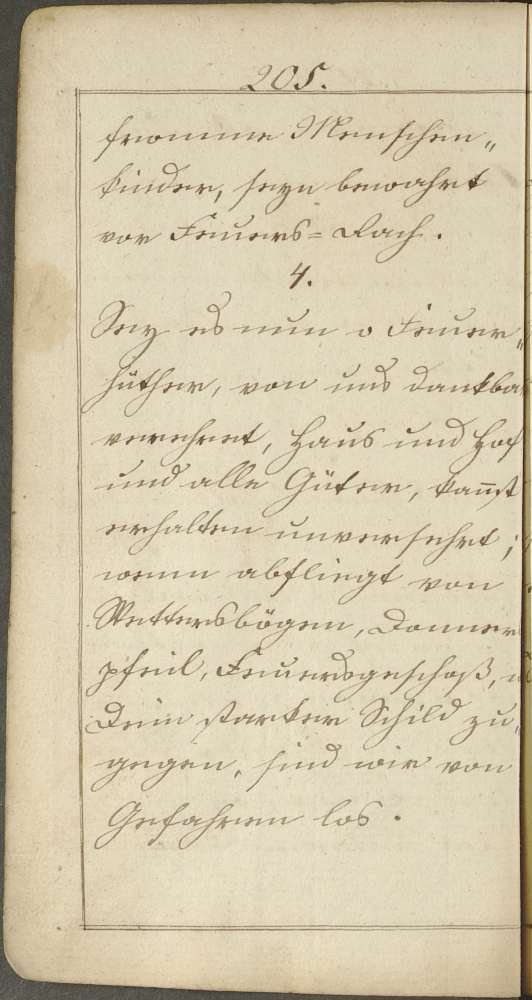 205.
fromme Menschen„
kinder, seyn bewahrt
vor Feuers=Rach.
4.
Sey es nun o Feuer„
hüther, von uns dankba
verehret, Haus und Hof
und alle Güter, kan̄st
erhalten unversehrt;
wenn abfliegt von
Wettersbögen, Donner
pfeil, Feuersgeschoß,
Dein starker Schild zu„
gegen, sind wir von
Gefahren los.